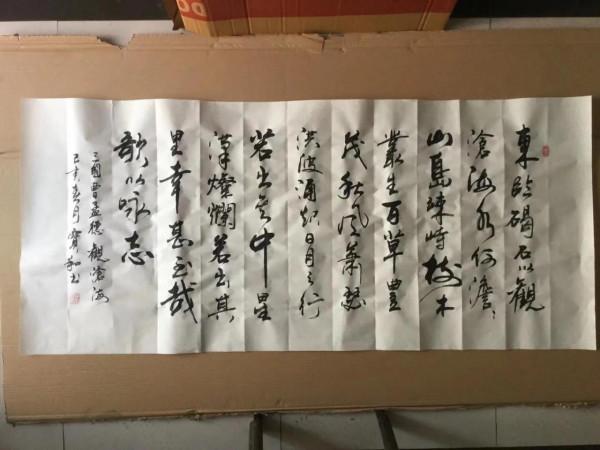 東臨碣石以觀
滄海水何澹澹
山島竦峙樹木
叢生百草豐
茂秋風蕭瑟
洪波涌起日月之行
若出其中星
漢燦爛若出其
里幸甚至哉
歌以咏志
三國曹孟德觀滄海
己亥春月寶和書